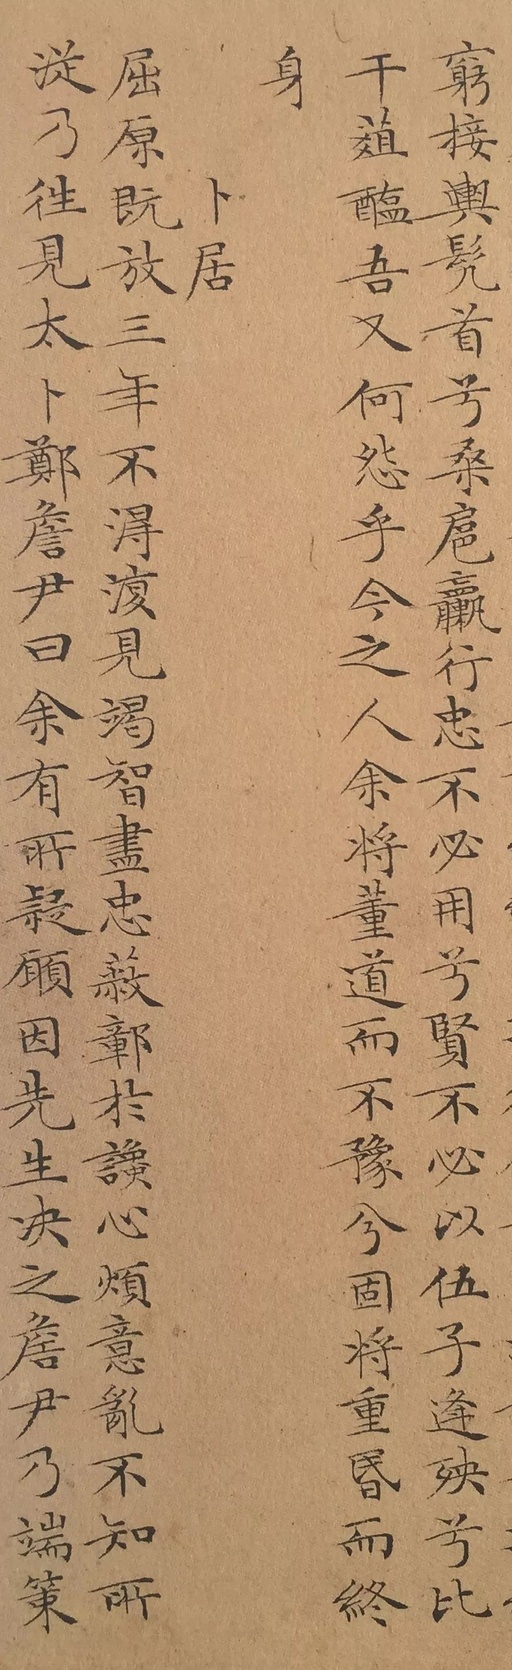 窮接輿髡首兮桑扈臝行忠不必用兮賢不必以伍子逢殃兮比
干葅醢吾又何怨乎今之人余将董道而不豫兮固将重昬而終
身
卜居
屈原既放三年不淂復見竭智盡忠蔽鄣於讒心煩意亂不知所
従乃往見太卜鄭詹尹曰余有所疑願因先生决之詹尹乃端策